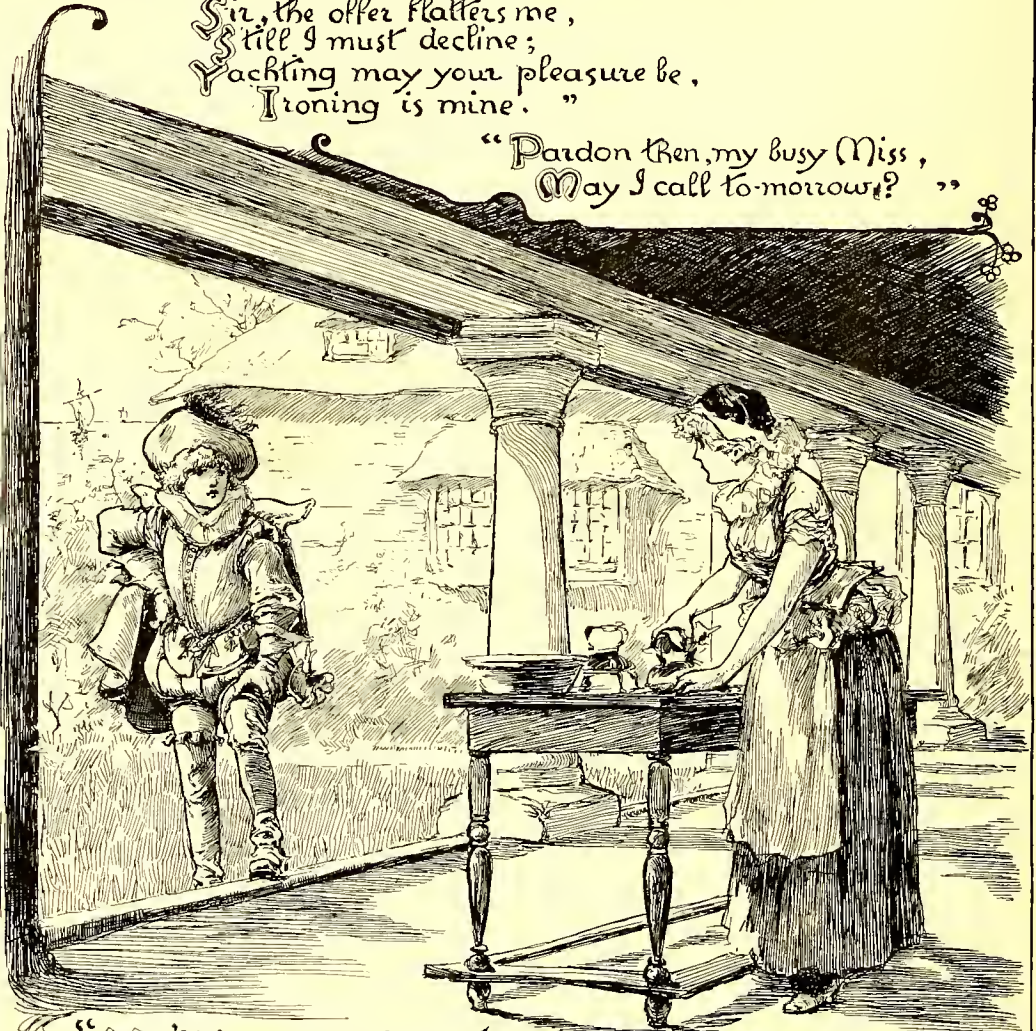 Sir, the offer flatters me,
Still I must decline;
Yachting may your pleasure be,
Ironing is mine."
"Pardon then, my busy Miss,
May I call to-morrow?"